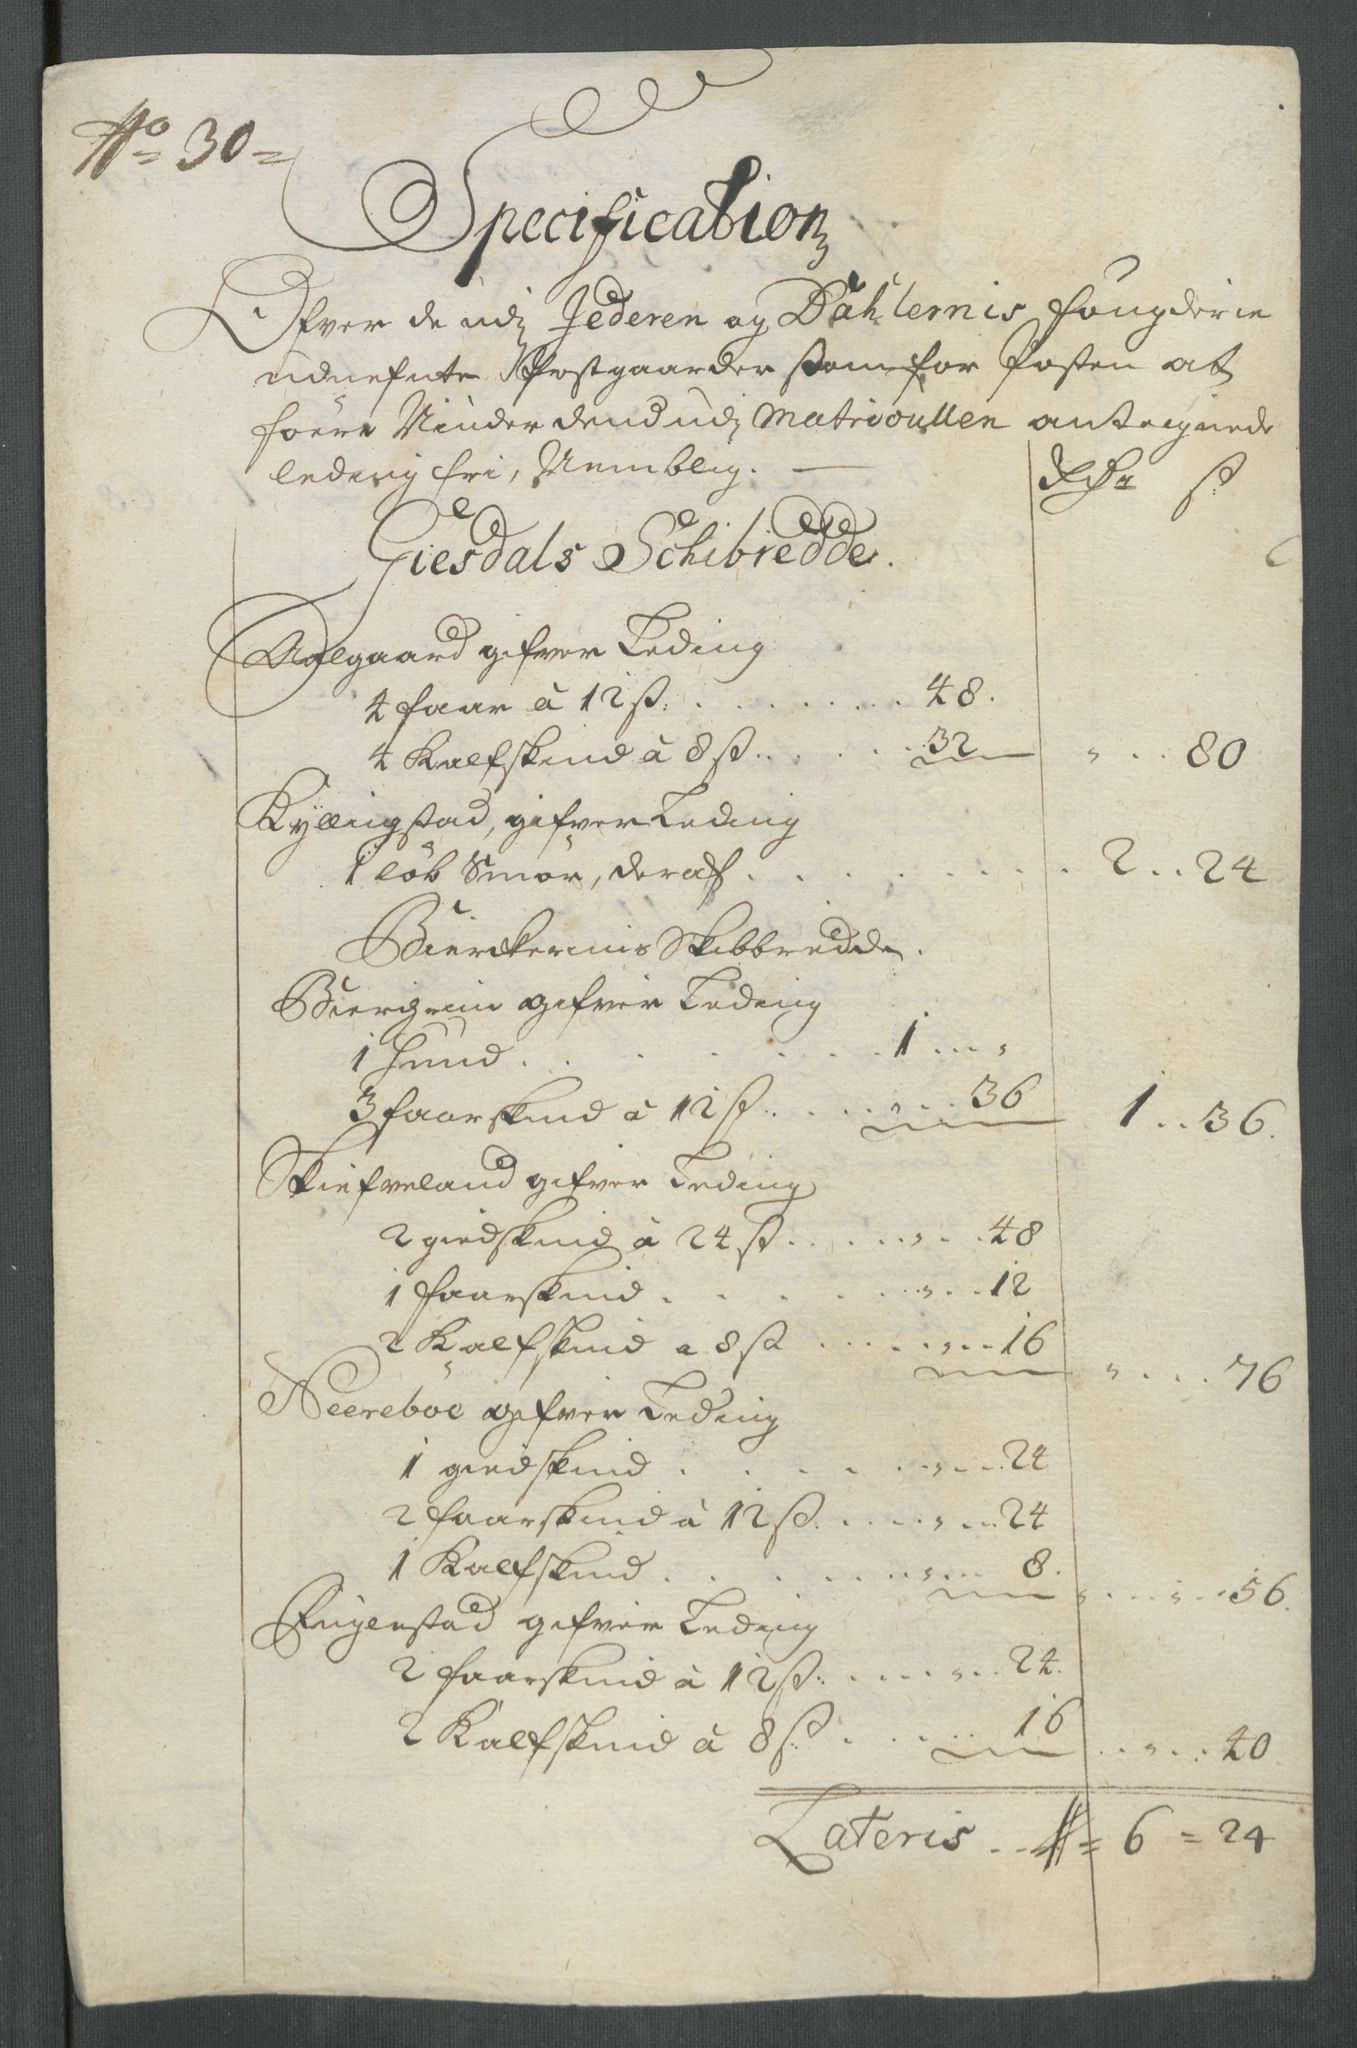 No 30
Specification
Ofver de udj Jederen og Dahlernis fougderie
udnefnte Postgaarder som for Posten at
föere Niuder dend udj Matricullen antegnede
leding fri, Nemblig.
Rdr ß
Giesdals Schibredde.
Aalgaard gifver Leding
4 faar à 12 ß. . . . . . . . 48.
4 Kalfskind à 8 ß. . . . . . 32 " . . 80
Kyllingstad, gifver Leding
1 löb Smör, deraf . . . . . . . . 2 . . 24
Bierckernis Skibbredde.
Biercheim gifver Leding
1 hund . . . . . . . . 1 . . . "
3 faarskind à 12 ß . . . . " . . . 36 1 . . 36.
Skiefveland gifver Leding
2 giedskind à 24 ß . . . . " . . . 48
1 faarskind . . . . . . . " . . . 12
2 Kalfskind a 8 ß . . . . . " . . . 16 " . . . . 76
Neereböe gifver Leding
1 giedskind . . . . . . " . . . 24
2 faarskind à 12 ß. . . . . " . . . 24
1 Kalfskind . . . . . . . " . . . 8. " . . . . " . . 56.
Eigenstad gifver Leding
2 faarskind à 12 ß. . . . . " . . 24.
2 Kalfskind à 8 ß. . . . . . . 16 . . " . . . 40
Lateris . . . 6 = 24